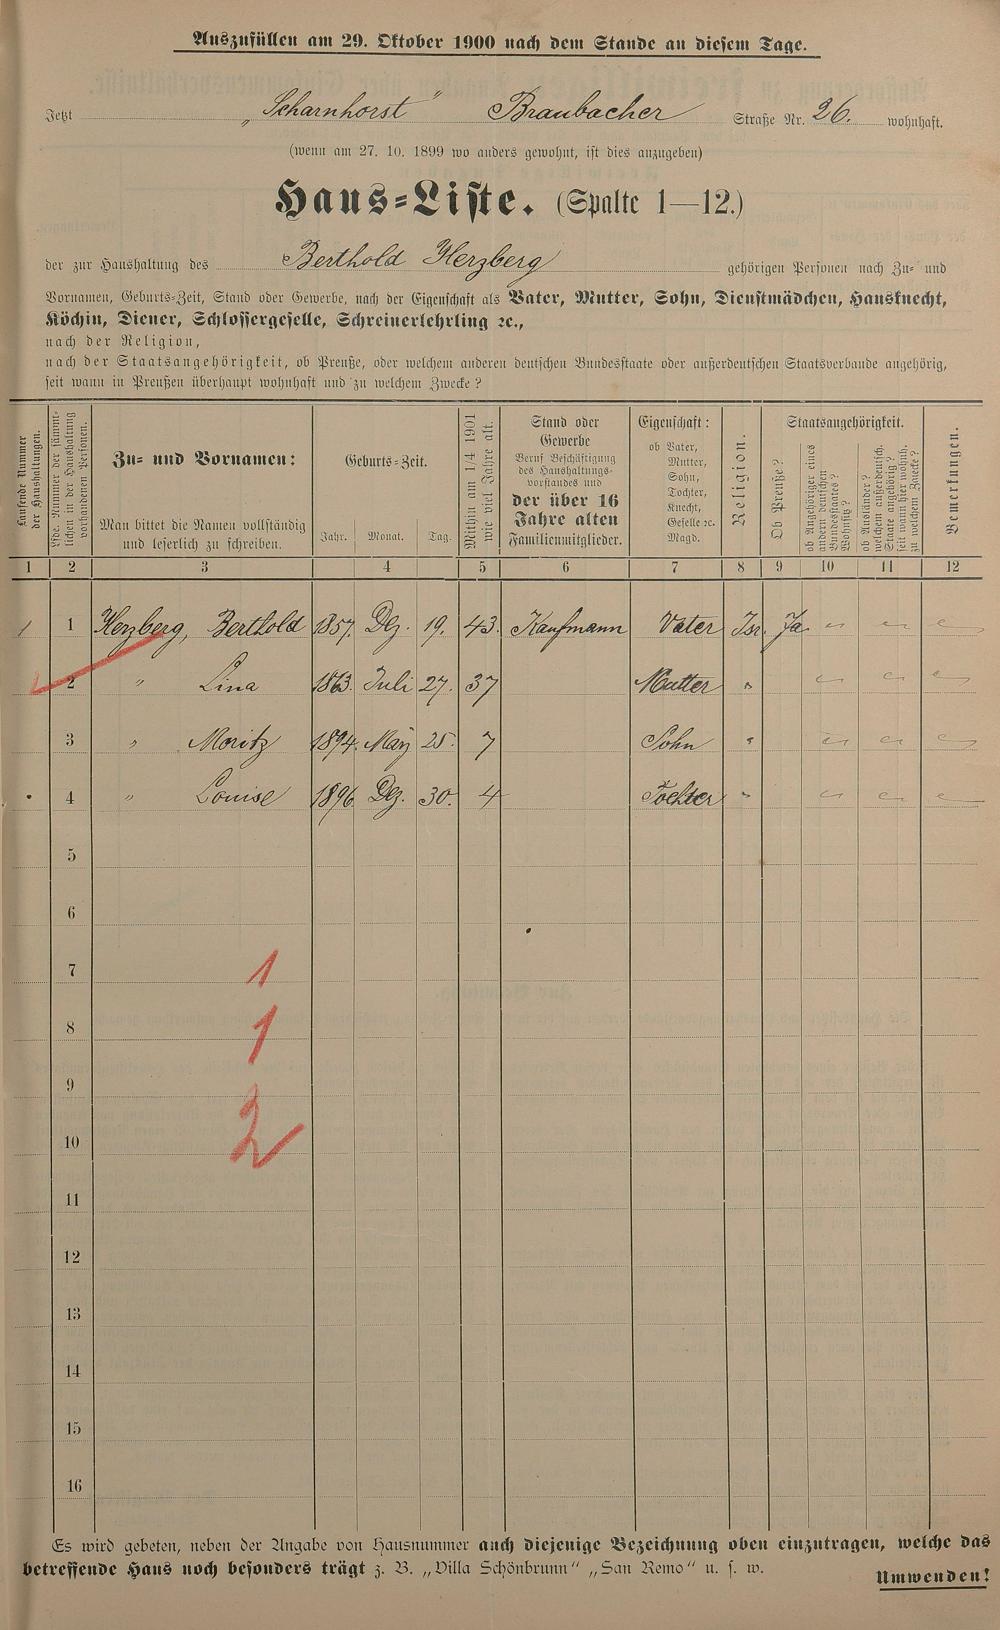 Auszufüllen am 29. Oktober 1900 nach dem Stande an diesem Tage.
Jetzt „Scharnhorst“ Braubacher Straße Nr. 26. wohnhaft.
(wenn am 27. 10. 1899 wo anders gewohnt, ist dies anzugeben)
Haus-Liste. (Spalte 1—12.)
der zur Haushaltung des Berthold Herzberg gehörigen Personen nach Zu- und
Vornamen, Geburts-Zeit, Stand oder Gewerbe, nach der Eigenschaft als Vater, Mutter, Sohn, Dienstmädchen, Hausknecht,
Köchin, Diener, Schlossergeselle, Schreinerlehrling ꝛc.,
nach der Religion,
nach der Staatsangehörigkeit, ob Preuße, oder welchem anderen deutschen Bundesstaate oder außerdeutschen Staatsverbande angehörig,
seit wann in Preußen überhaupt wohnhaft und zu welchem Zwecke?
Laufende Nummer
der Haushaltungen.
Lfde. Nummer der sämmt-
lichen in der Haushaltung
vorhandenen Personen.
Zu- und Vornamen:
Man bittet die Namen vollständig
und leserlich zu schreiben.
Geburts-Zeit.
Jahr. Monat. Tag.
Mithin am 1/4 1901
wie viel Jahre alt.
Stand oder
Gewerbe
Beruf Beschäftigung
des Haushaltungs-
vorstandes und
der über 16
Jahre alten
Familienmitglieder.
Eigenschaft:
ob Vater,
Mutter,
Sohn,
Tochter,
Knecht,
Geselle ꝛc.
Magd.
Religion.
Staatsangehörigkeit.
Ob Preuße?
ob Angehöriger eines
andern deutschen
Bundesstaates?
Wohnsitz?
ob Ausländer?
welchem außerdeutsch.
Staate angehörig?
seit wann hier wohnh.
zu welchem Zwecke?
Bemerkungen.
1 2 3 4 5 6 7 8 9 10 11 12
1 1 Herzberg, Berthold 1857. Dez. 19. 43. Kaufmann Vater Isr. Ja
2 " Lina 1863. Juli 27. 37 Mutter "
3 " Moritz 1894. März 25. 7 Sohn "
4 " Louise 1896 Dez. 30. 4 Tochter "
5
6
7 1
8 1
9
10 2
11
12
13
14
15
16
Es wird gebeten, neben der Angabe von Hausnummer auch diejenige Bezeichnung oben einzutragen, welche das
betreffende Haus noch besonders trägt z. B. „Villa Schönbrunn“ „San Remo“ u. s. w.
Umwenden!